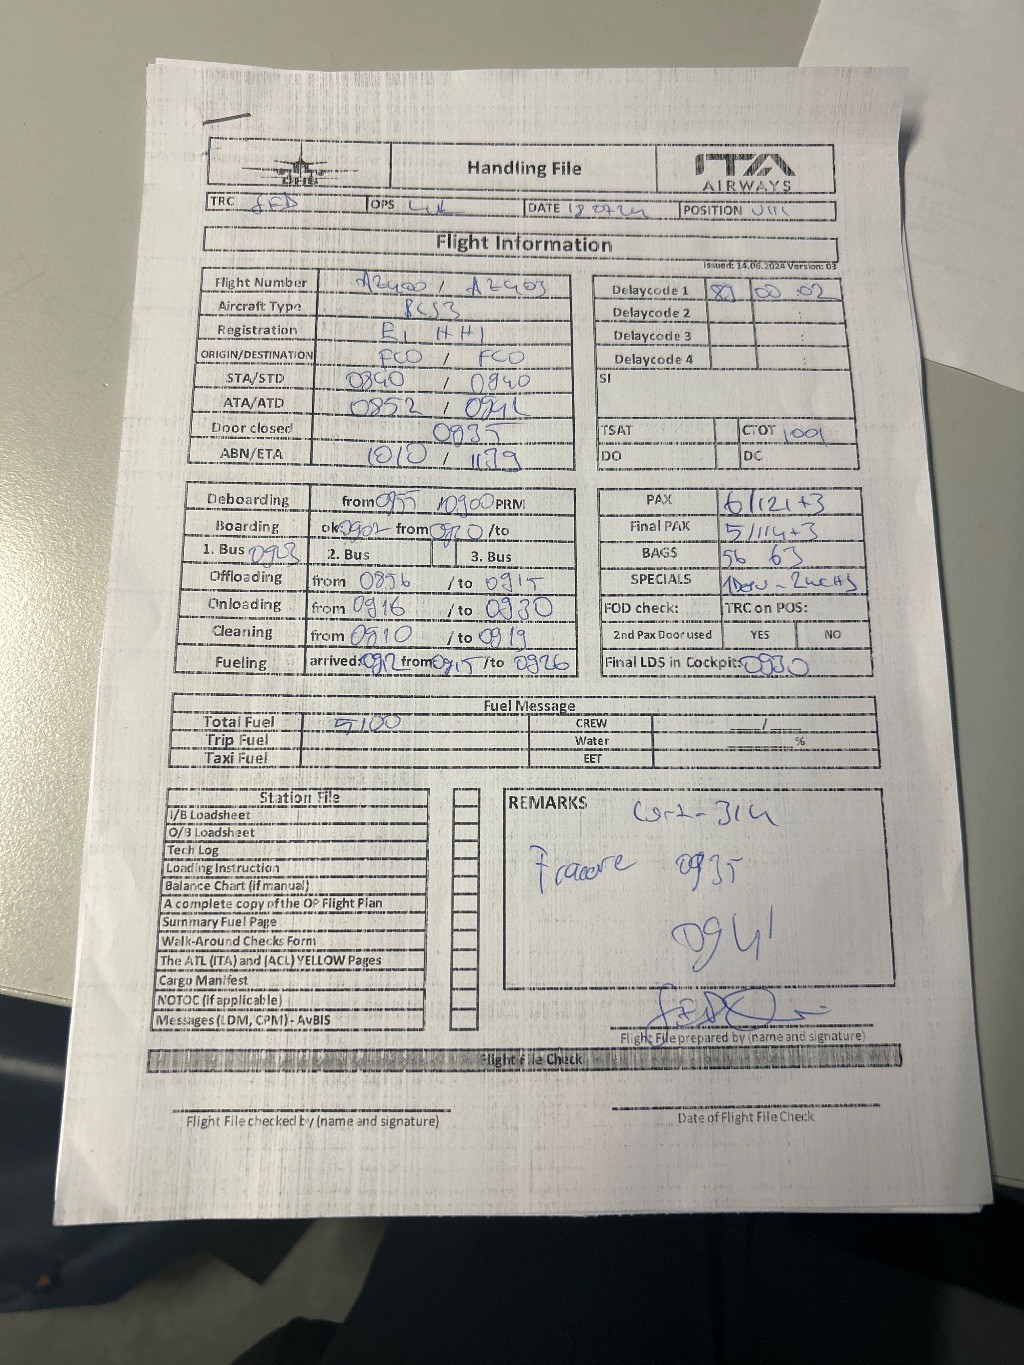 DHS Handling File ITA AIRWAYS
TRC SED OPS DATE 180724 POSITION
Flight Information
Issued: 14.06.2024 Version: 03
Flight Number AZ400 / AZ403
Aircraft Type BCS3
Registration EI HHI
ORIGIN/DESTINATION FCO / FCO
STA/STD 0840 / 0940
ATA/ATD 0852 / 0942
Door closed 0935
ABN/ETA 1010 / 1139
Delaycode 1 89 00 : 02
Delaycode 2 :
Delaycode 3 :
Delaycode 4 :
SI
TSAT CTOT 1001
DO DC
Deboarding from 0855 / 0900 PRM
Boarding ok 0902 from 0920 /to
1. Bus 0923 2. Bus 3. Bus
Offloading from 0856 /to 0915
Onloading from 0916 /to 0930
Cleaning from 0910 /to 0919
Fueling arrived: 0912 from 0915 /to 0926
PAX 6/121+3
Final PAX 5/114+3
BAGS 56 63
SPECIALS
FOD check: TRC on POS:
2nd Pax Door used YES NO
Final LDS in Cockpit: 0930
Fuel Message
Total Fuel 5100 CREW /
Trip Fuel Water %
Taxi Fuel EET
Station File
I/B Loadsheet
O/B Loadsheet
Tech Log
Loading Instruction
Balance Chart (if manual)
A complete copy of the OP Flight Plan
Summary Fuel Page
Walk-Around Checks Form
The ATL (ITA) and (ACL) YELLOW Pages
Cargo Manifest
NOTOC (if applicable)
Messages (LDM, CPM) - AvBIS
REMARKS
0935
0941
Flight File prepared by (name and signature)
Flight File Check
Flight File checked by (name and signature)
Date of Flight File Check